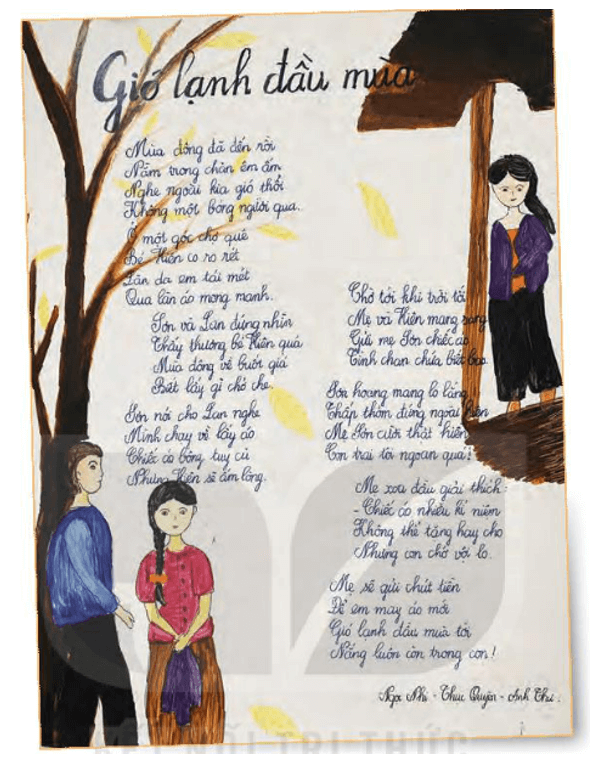 Gió lạnh đầu mùa
Mùa đông đã đến rồi
Nằm trong chăn êm ấm
Nghe ngoài kia gió thổi
Không một bóng người qua.
Ở một góc chợ quê
Bé Hiên co ro rét
Làn da em tái mét
Qua làn áo mong manh.
Sơn và Lan đứng nhìn
Thấy thương bé Hiên quá
Mùa đông về buốt giá
Biết lấy gì chở che.
Sơn nói cho Lan nghe
Mình chạy về lấy áo
Chiếc áo bông tuy cũ
Nhưng Hiên sẽ ấm lòng.
Chờ tới khi trời tối
Mẹ và Hiên mang sang
Gửi mẹ Sơn chiếc áo
Tình chan chứa biết bao
Sơn hoang mang lo lắng
Thấp thỏm đứng ngoài hiên
Mẹ Sơn cười thật hiền
Con trai tôi ngoan quá!
Mẹ xoa đầu giải thích:
- Chiếc áo nhiều kỉ niệm
Không thể tặng hay cho
Nhưng con chớ vội lo.
Mẹ sẽ gửi chút tiền
Để em may áo mới
Gió lạnh đầu mùa tới
Nắng luôn còn trong con!
Ngọc Nhi - Thục Quyên - Anh Thư.
KẾT NỐI TRI THỨC